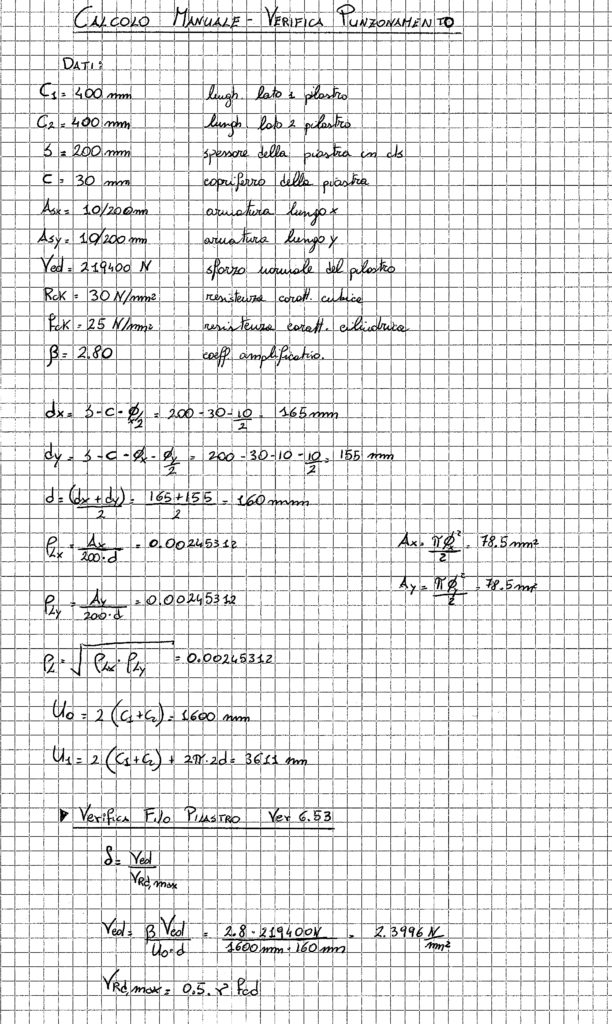 CALCOLO MANUALE - VERIFICA PUNZONAMENTO
DATI:
C1 = 400 mm lungh. lato 1 pilastro
C2 = 400 mm lungh. lato 2 pilastro
S = 200 mm spessore della piastra in cls
C = 30 mm copriferro della piastra
Asx = 10/200mm armatura lungo x
Asy = 10/200 mm armatura lungo y
Ved = 219400 N sforzo normale del pilastro
RcK = 30 N/mm² resistenza caratt. cubica
FcK = 25 N/mm² resistenza caratt. cilindrica
β = 2.80 coeff. amplificativo.
dx = S - C - ϕx/2 = 200 - 30 - 10/2 = 165 mm
dy = S - C - ϕx - ϕy/2 = 200 - 30 - 10 - 10/2 = 155 mm
d = (dx + dy)/2 = 165 + 155/2 = 160 mm
ρLx = Ax/200·d = 0.00245312 Ax = πϕx²/2 = 78.5 mm²
ρLy = Ay/200·d = 0.00245312 Ay = πϕy²/2 = 78.5 m²
ρL = √ρLx · ρLy = 0.00245312
U0 = 2 (C1 + C2) = 1600 mm
U1 = 2 (C1 + C2) + 2π·2d = 3611 mm
▶ VERIFICA FILO PILASTRO Ver 6.53
δ = Ved/VRd,max
Ved = β Ved/U0·d = 2.8 · 219400N/1600mm · 160 mm = 2.3996 N/mm²
VRd,max = 0.5 · γ Fcd